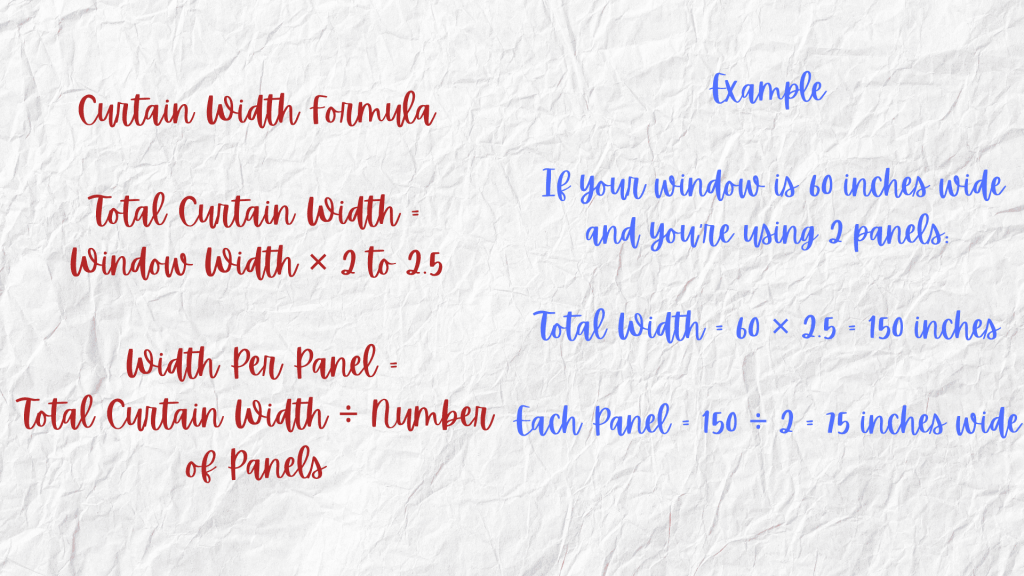 Curtain Width Formula
Total Curtain Width =
Window Width × 2 to 2.5
Width Per Panel =
Total Curtain Width ÷ Number
of Panels
Example
If your window is 60 inches wide
and you're using 2 panels:
Total Width = 60 × 2.5 = 150 inches
Each Panel = 150 ÷ 2 = 75 inches wide